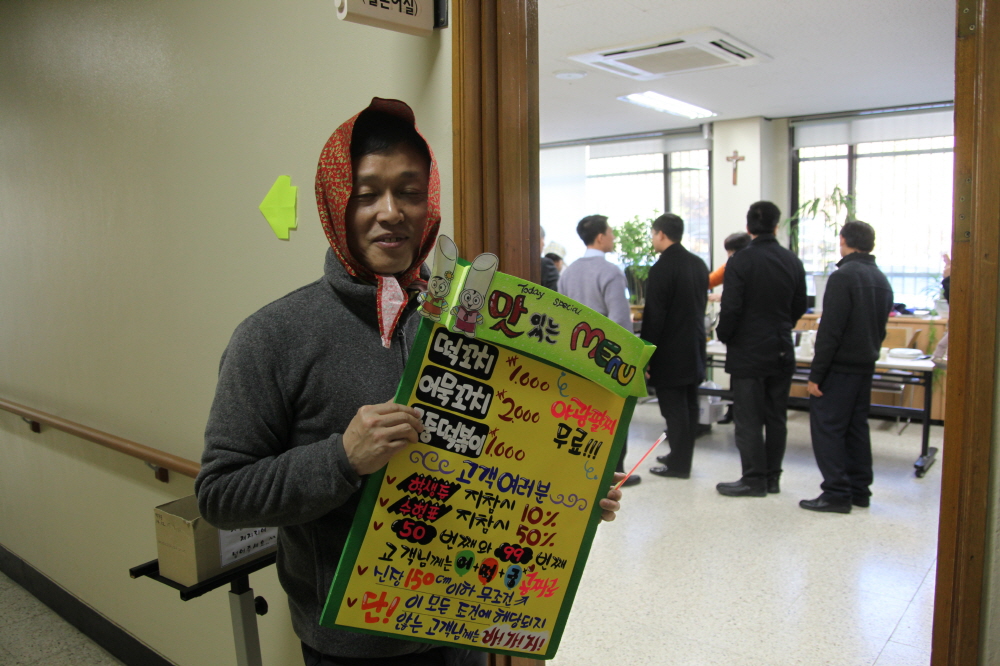 Today special
맛있는 MENU
떡꼬치 ₩1.000
어묵꼬치 ₩2000
떡볶이 ₩1.000
야광팔찌
무료!!!
고객여러분
학생증 지참시 10%
수험표 지참시 50%
50 번째와 99 번째
고객님께는 어+떡+콩
신장 150cm 이하 무조건
단! 이 모든 조건에 해당되지
않는 고객님께는 바가지!